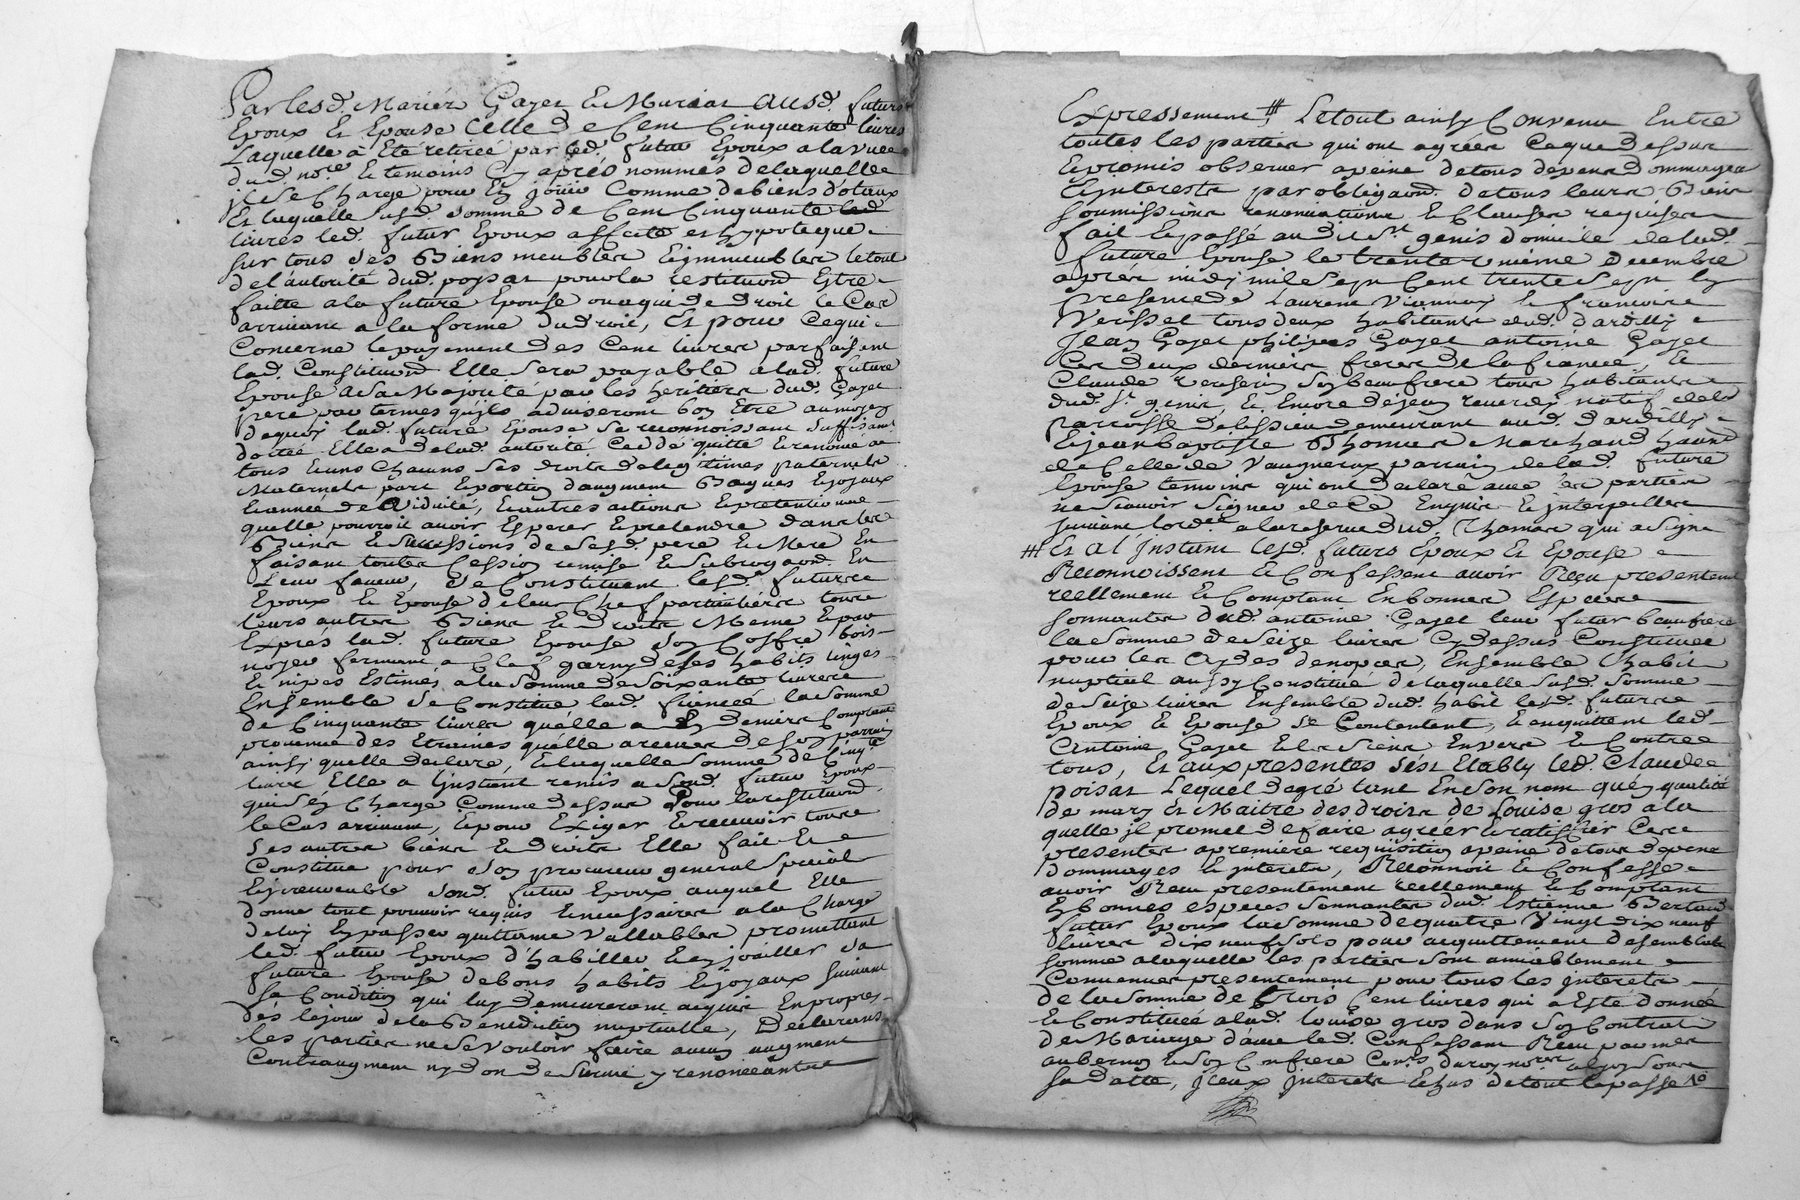 Par lesd. Mariéz Gayet & Muriat ausd. futurs
Epoux Et Epouse Celle de Cent Cinquante livres
Laquelle à Eté retirée par led. futur Epoux a la vuee
dud. nore. & temoins Cy aprés nommés de laquelle
il se Charge pour En joüir Comme de biens dotaux
Et laquelle susd. somme de Cent Cinquante
livres led. futur Epoux affecte et hypoteque
sur tous ses Biens meubles & immeubles le tout
de l'autorité dud. poysat pour la restituond Estre
faitte a la future Epouse ou a qui de droit le Cas
arrivant a la forme du droit, Et pour Ce qui
Concerne le payement des Cent livres parfaisant
lad. Constituond Elle sera payable a lad. future
Epouse a sa Majorité par les heritiers dud. Gayet
pere par termes qu'jls aduiseront bon Etre au moyen
dequoy lad. future Epouse se reconnoissant suffisamt
dottée Elle a de lad. autorité Cedde quitte & renoncé a
tous & uns Chacuns ses droits de legitimes paternels
Maternels part & portion d'augment Bagues & joyaux
& année de Viduité, & autres actions & pretentions
quelle pourroit auoir Esperer & pretendre dans les
Biens & successions de sesd. pere & Mere En
faisant toutes Cession remise & subrogaond. En
Leur faueur, se Constituent lesd. futurs
Epoux & Epouse de leur Chef particulier tous
leurs autres Biens & droits Meme & par
Exprés lad. future Epouse son Coffre bois
noyer fermant a Clef garny de ses habits linges
& nipes Estimés a la somme de soixante livres
Ensemble se Constitue lad. fiancée la somme
de Cinquante livres qu'elle a En deniers Comptant
prouenue des Etraines qu'elle a receues de son parrain
ainsy quelle declare, & laquelle somme de Cinqte
livres Elle a à l'jnstant remis a sond. futur Epoux
qui s'en Charge Comme dessus pour la restituond.
le Cas arriuant, & pour Exiger & receuoir tous
ses autres biens & droits Elle fait &
Constitue pour son procureur general special
& jrreuocable sond. futur Epoux auquel Elle
donne tout pouuoir requis & necessaires a la Charge
de luy En passer quittance Vallables promettant
led. futur Epoux d'habiller & enjoailler sa
future Epouse de bons habits & joyaux suiuant
sa Condition qui luy demeureront acquis En propres
des le jour de la Benediction nuptialle, Declarant
les parties ne se vouloir faire aucun augment
Contraugment ny don de suruie y renonceant
Expressement # Le tout ainsy Convenu Entre
toutes les parties qui ont agrées Ce que dessus
& promis observer a peine de tous depens dommages
& jnterests par obligaond. de tous leurs Biens
soumissions renonciations & Clauses requises
fait & passé audit St. genis domicile de lad.
future Epouse le trente vnième decembre
aprés midy mil sept Cent trente sept En
presence de Laurent Viannay & francois
Verisset tous deux habitants dud. dardilly
Jean Gayet philipes Gayet antoine Gayet
Ces deux derniers freres de la fiancée, &
Claude son beaufrere tous habitants
dud. St. genis, & Encore de jean reuerdy natif de la
parroisse de lissieu demeurant aud. dardilly
& jean baptiste Thomas Marchand
de Celle de Vaugneray parrain de lad. future
Epouse temoins qui ont declaré auec les parties
ne scauoir signer de Ce Enquis & jnterpellés
suiuant lordce a la reserue dud. Thomas qui a signé
# Et a l'jnstant lesd. futurs Epoux Et Epouse
Reconnoissent & Confessent auoir Reçu presentemt
reellement & Comptant En bonnes Especes
sonnantes dud. antoine Gayet leur futur beaufrere
la somme de seize livres Cy dessus Constituée
pour les aydes de nopces, Ensemble l'habit
nuptial aussy Constitué de laquelle susd. somme
de seize livres Ensemble dud. habit lesd. futurs
Epoux & Epouse se Contentent, & acquittent led.
Antoine Gayet & les siens Envers & Contre
tous, Et aux presentes s'est Etably led. Claude
poisat Lequel de gré tant En son nom qu'en qualité
de mary Et Maitre des droits de Louise gros a la
quelle jl promet de faire agréer & ratiffier Ces
presentes a premiere requisition a peine de tous depens
dommages & jnterets, Reconnoit & Confesse
auoir Reçu presentement reellement & Comptant
En bonnes especes sonnantes dud. Estienne Bertaud
futur Epoux la somme de quatre Vingt dix neuf
livres dix neuf sols pour acquittement de semblable
somme a laquelle les parties sont amiablement
Conuenues presentement pour tous les jnterets
de la somme de trois Cent livres qui a Esté donnée
& Constituée a lad. louise gros dans son Contrat
de Mariage d'auec led. Confessant Reçu par mes
aubernon & son Confrere Cons. du roy nores. a lyon sous
sa datte, jceux jnterets Echus de tout le passé